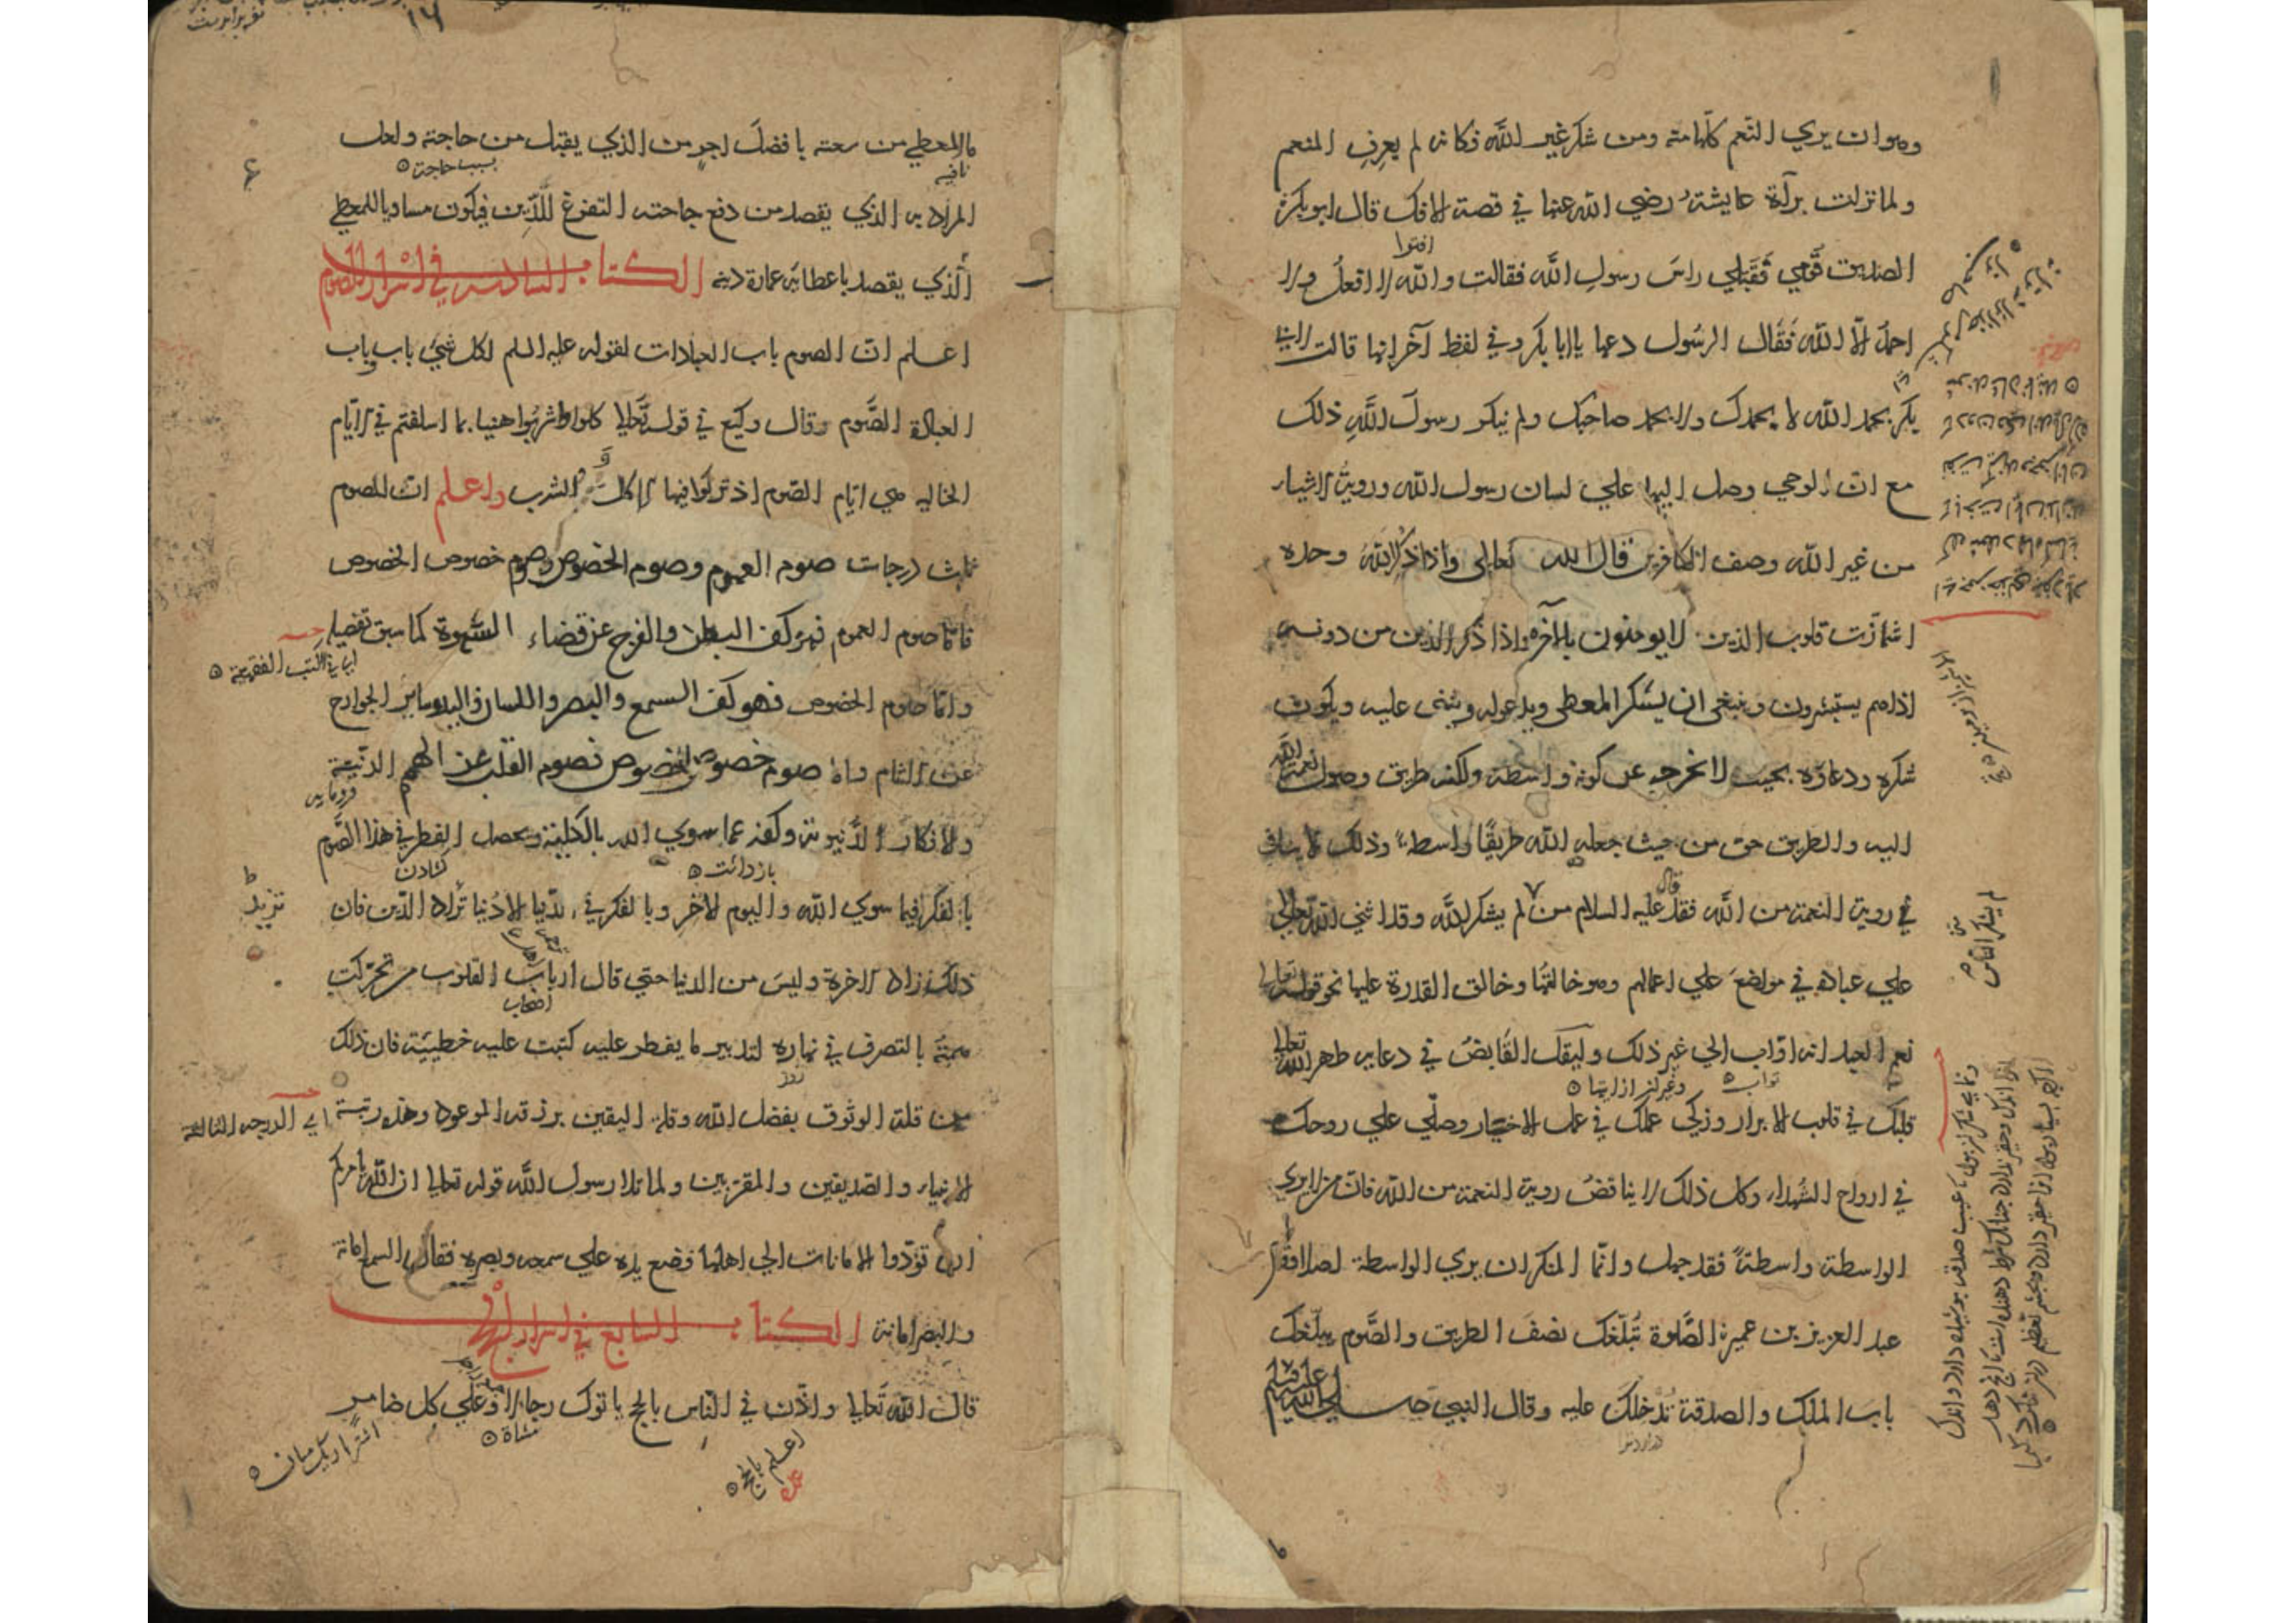 وهو ان يري النعم كلها منه ومن شكر غير الله فكانه لم يعرف المنعم
ولما نزلت براة عايشة رضي الله عنها في قصة الافك قال ابو بكر
الصديق قومي فقبلي راس رسول الله فقالت والله لا افعل ولا
احمد الا الله فقال الرسول دعها يا ابا بكر وفي لفظ آخر انها قالت لابي
بكر بحمد الله لا بحمدك ولا بحمد صاحبك ولم ينكر رسول الله ذلك
مع ان الوحي وصل اليها علي لسان رسول الله وروية الاشياء
من غير الله وصف الكافرين قال الله تعالى واذا ذكر الله وحده
اشمازت قلوب الذين لا يومنون بالآخره واذا ذكر الذين من دونه
اذا هم يستبشرون وينبغى ان يشكر المعطى ويدعو له ويثنى عليه ويكون
شكره ودعاؤه بحيث لا يخرجه عن كونه واسطة ولكنه طريق وصول نعمة الله
اليه وللطريق حق من حيث جعله الله طريقا واسطة وذلك لا ينافي
في روية النعمة من الله فقد قال عليه السلام من لم يشكر الله وقد اثني الله تعالي
لم يشكر الناس
علي عباده في مواضع علي اعمالهم وهو خالقها وخالق القدرة عليها نحو قوله تعالي
نعم العبد انه اواب الي غير ذلك وليقل القابض في دعايه طهر الله تعالي
تواب
قلبك في قلوب الابرار وزكي عملك في عمل الاخيار وصلي علي روحك
في ارواح الشهداء وكل ذلك لا يناقض روية النعمة من الله فان من لا يري
الواسطة واسطة فقد جهل وانما المنكر ان يري الواسطة اصلا وقال
عبد العزيز بن عمير الصلوة تبلغك نصف الطريق والصوم يبلغك
باب الملك والصدقة تدخلك عليه وقال النبي صلي الله عليه وسلم
ما المعطي من سعته بافضل اجر من الذي يقبل من حاجته ولعل
نافيه
بسبب حاجت
المراد به الذي يقصد من دفع حاجته التفرغ للدين فيكون مساويا للمعطي
الذي يقصد باعطائه عمارة دينه الكتاب السادس في اسرار الصوم
اعلم ان الصوم باب العبادات لقوله عليه السلم لكل شئ باب وباب
العبادة الصوم وقال وكيع في قوله تعالي كلوا واشربوا هنيا بما اسلفتم في الايام
الخاليه هي ايام الصوم اذ تركوا فيها الاكل والشرب واعلم ان للصوم
ثلث درجات صوم العموم وصوم الخصوص وصوم خصوص الخصوص
فاما صوم العموم فهو كف البطن والفرج عن قضاء الشهوة كما سبق تفصيله
اي في الكتب الفقهية
واما صوم الخصوص فهو كف السمع والبصر واللسان واليد وساير الجوارح
عن الاثام واما صوم خصوص الخصوص فصوم القلب عن الهمم الدنية
فرومايه
والافكار الدنيوية وكفه عما سوي الله بالكلية ويحصل الفطر في هذا الصوم
بازداشت
كشادن
بالفكر فيما سوي الله واليوم الاخر وبالفكر في الدنيا الا دنيا تراد للدين فان
ذلك زاد الاخرة وليس من الدنيا حتي قال ارباب القلوب من تحركت
اصحاب
همته بالتصرف في نهاره لتدبير ما يفطر عليه كتبت عليه خطيئة فان ذلك
روز
من قلة الوثوق بفضل الله وقلة اليقين برزقه الموعود وهذه رتبة
اي الدرجه الثالثة
الانبياء والصديقين والمقربين ولما تلا رسول الله قوله تعالي ان الله يامركم
ان تؤدوا الامانات الي اهلها فوضع يده علي سمعه وبصره فقال السمع امانة
والبصر امانة الكتاب السابع في اسرار الحج
قال الله تعالي واذن في الناس بالحج ياتوك رجالا وعلي كل ضامر
مشاة
اعلم بالحج